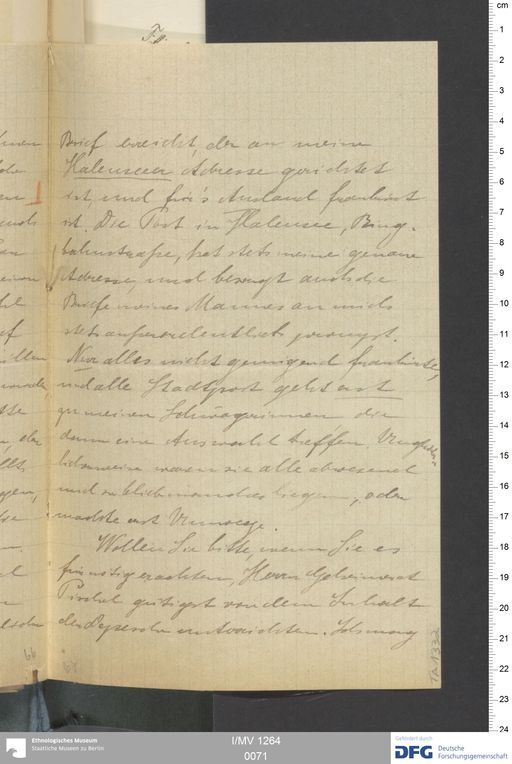 Brief erreicht, der an meine
Halenseeer Adresse gerichtet
ist, und für's Ausland frankiert
ist. Die Post in Halensee, Ring-
bahnstraße, hat stets meine genaue
Adresse, und besorgt auch die
Briefe meines Mannes an mich
stets außerordentlich prompt.
Nur alles nicht genügend frankierte,
und alle Stadtpost geht erst
zu meinen Schwägerinnen die
dann eine Auswahl treffen. Unglück-
licherweise waren sie alle abwesend
und so blieb manches liegen, oder
machte erst Umwege.
Wollen Sie bitte, wenn Sie es
für nötig erachten, Herrn Geheimrat
Pischel gütigst von dem Inhalt
der Depesche unterrichten. Ich mag
66
TA 1332
Ethnologisches Museum
Staatliche Museen zu Berlin
I/MV 1264
0071
Gefördert durch
DFG Deutsche
Forschungsgemeinschaft
cm
1
2
3
4
5
6
7
8
9
10
11
12
13
14
15
16
17
18
19
20
21
22
23
24